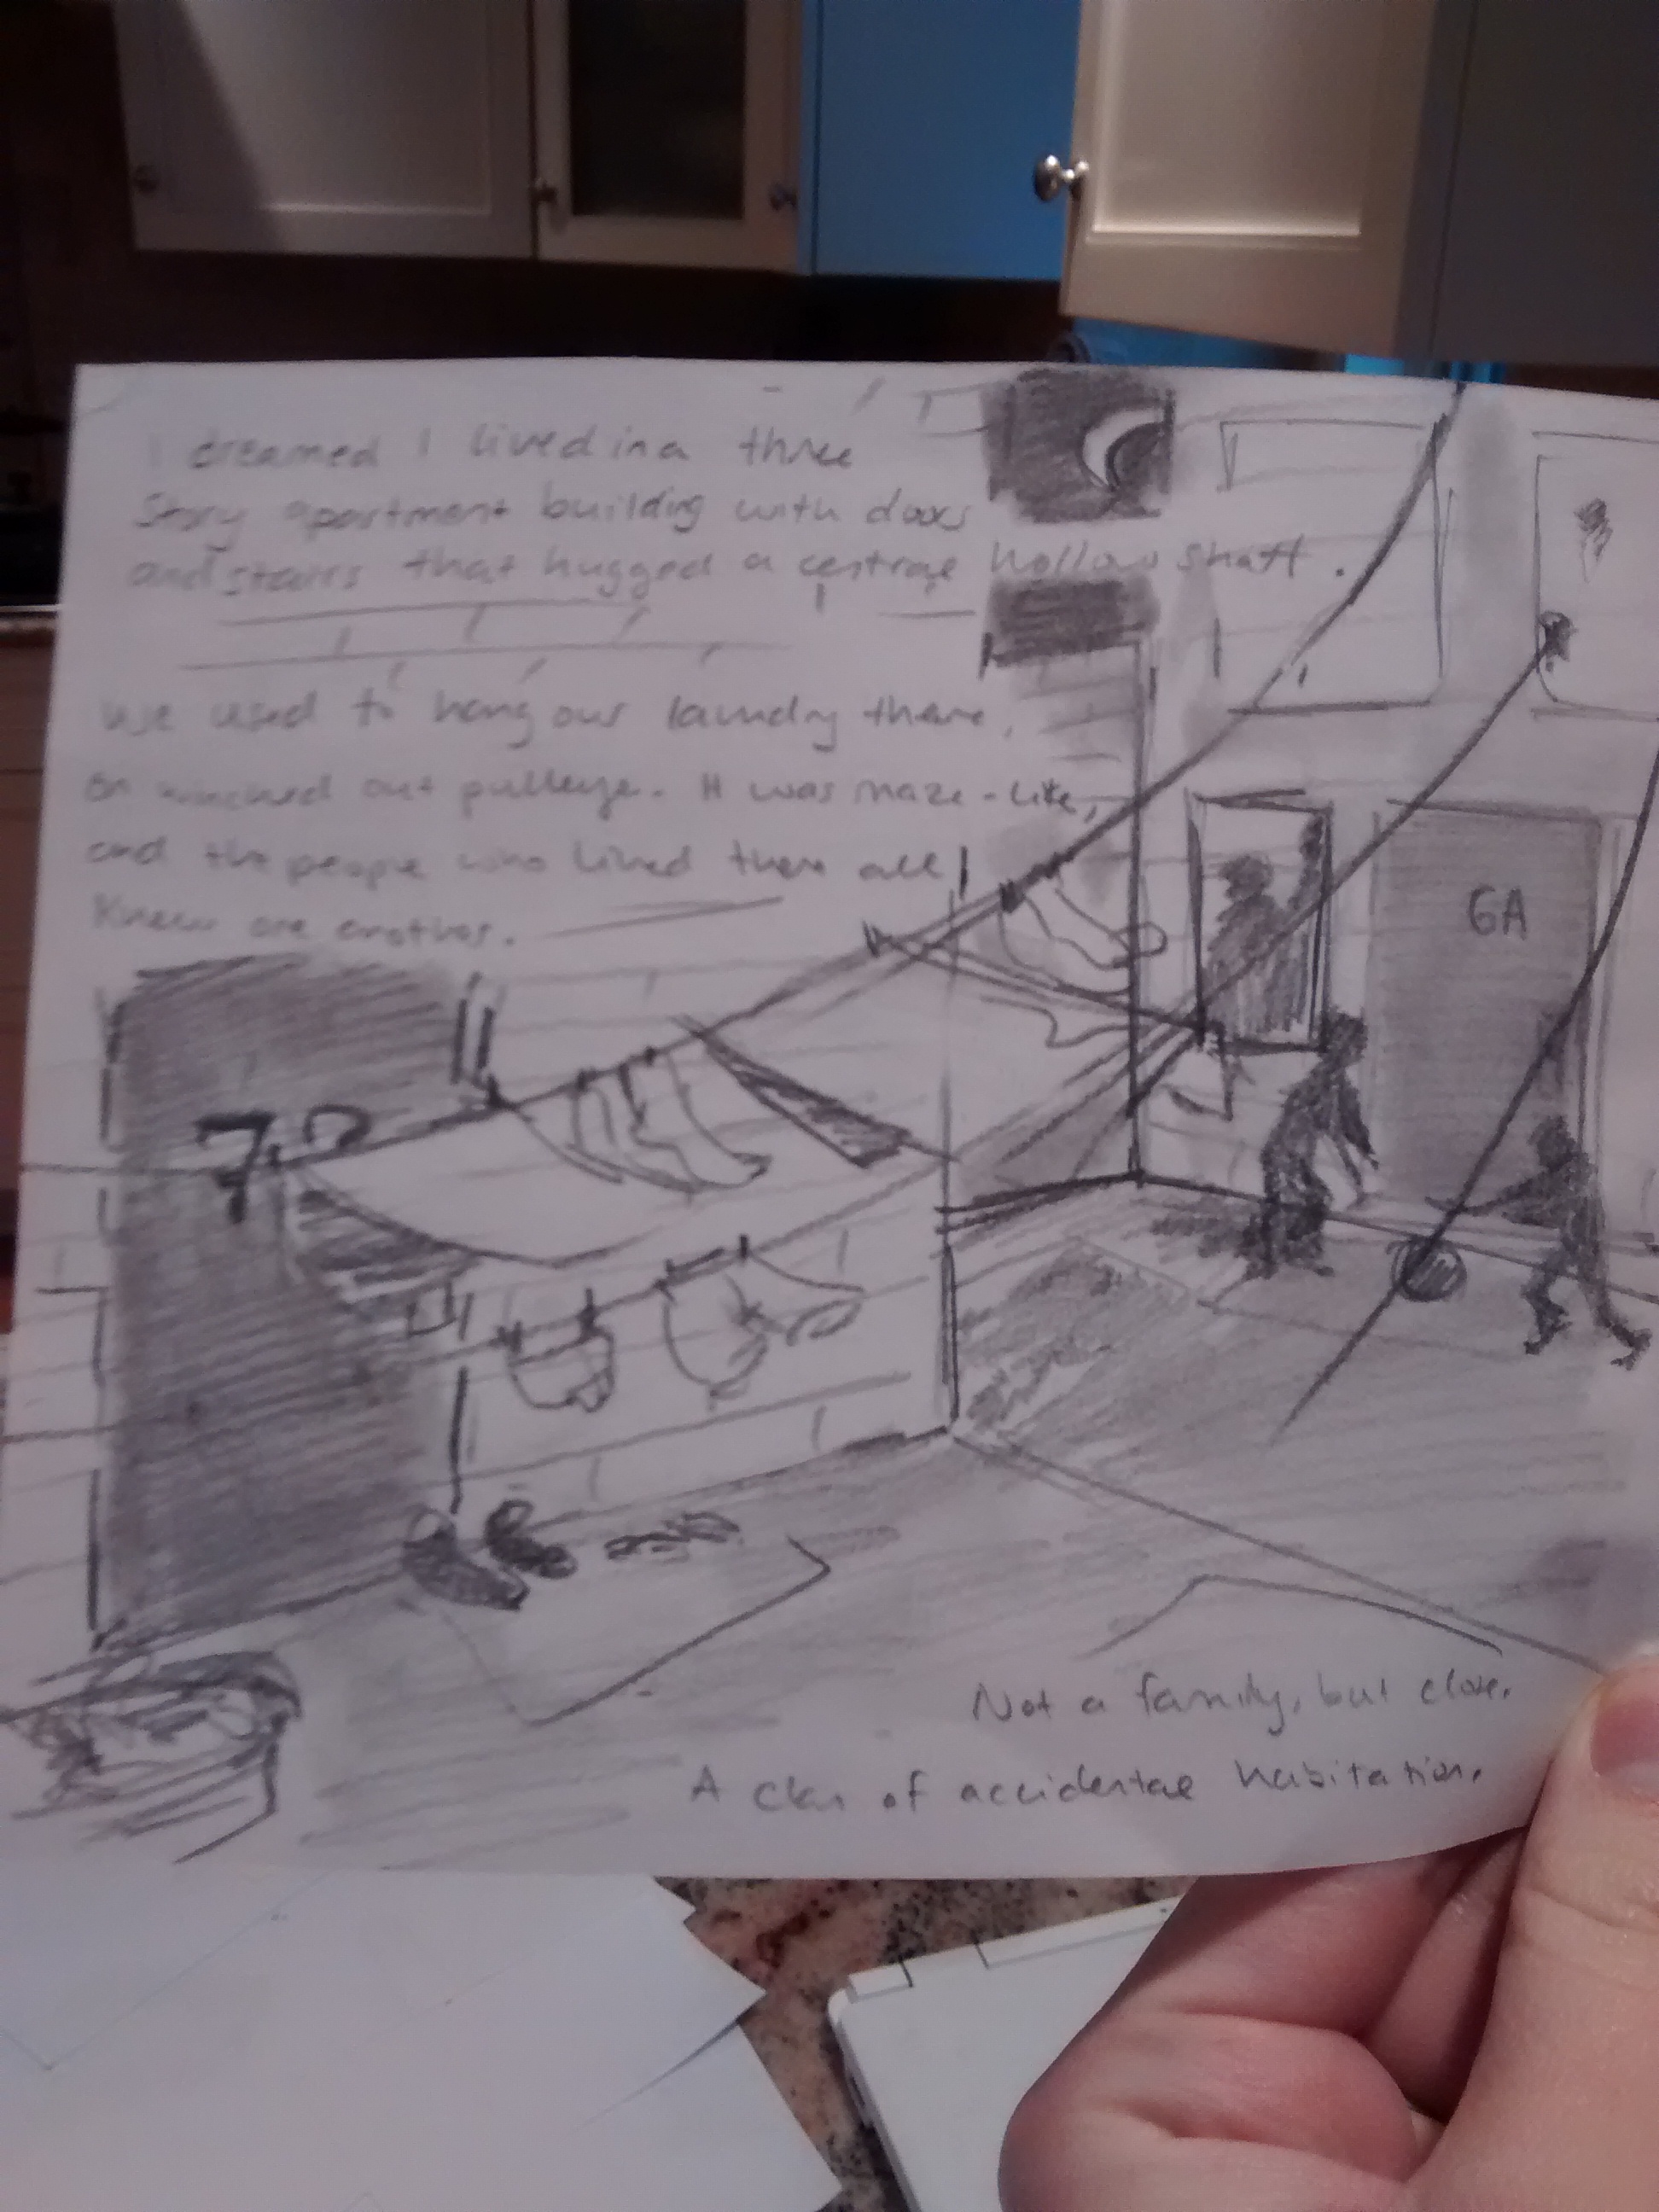 I dreamed I lived in a three
story apartment building with doors
and stairs that hugged a central hollow shaft.
We used to hang our laundry there,
on winched out pulleys. It was maze-like,
and the people who lived there all
knew one another.
6A
7
Not a family, but close.
A clan of accidental habitation.